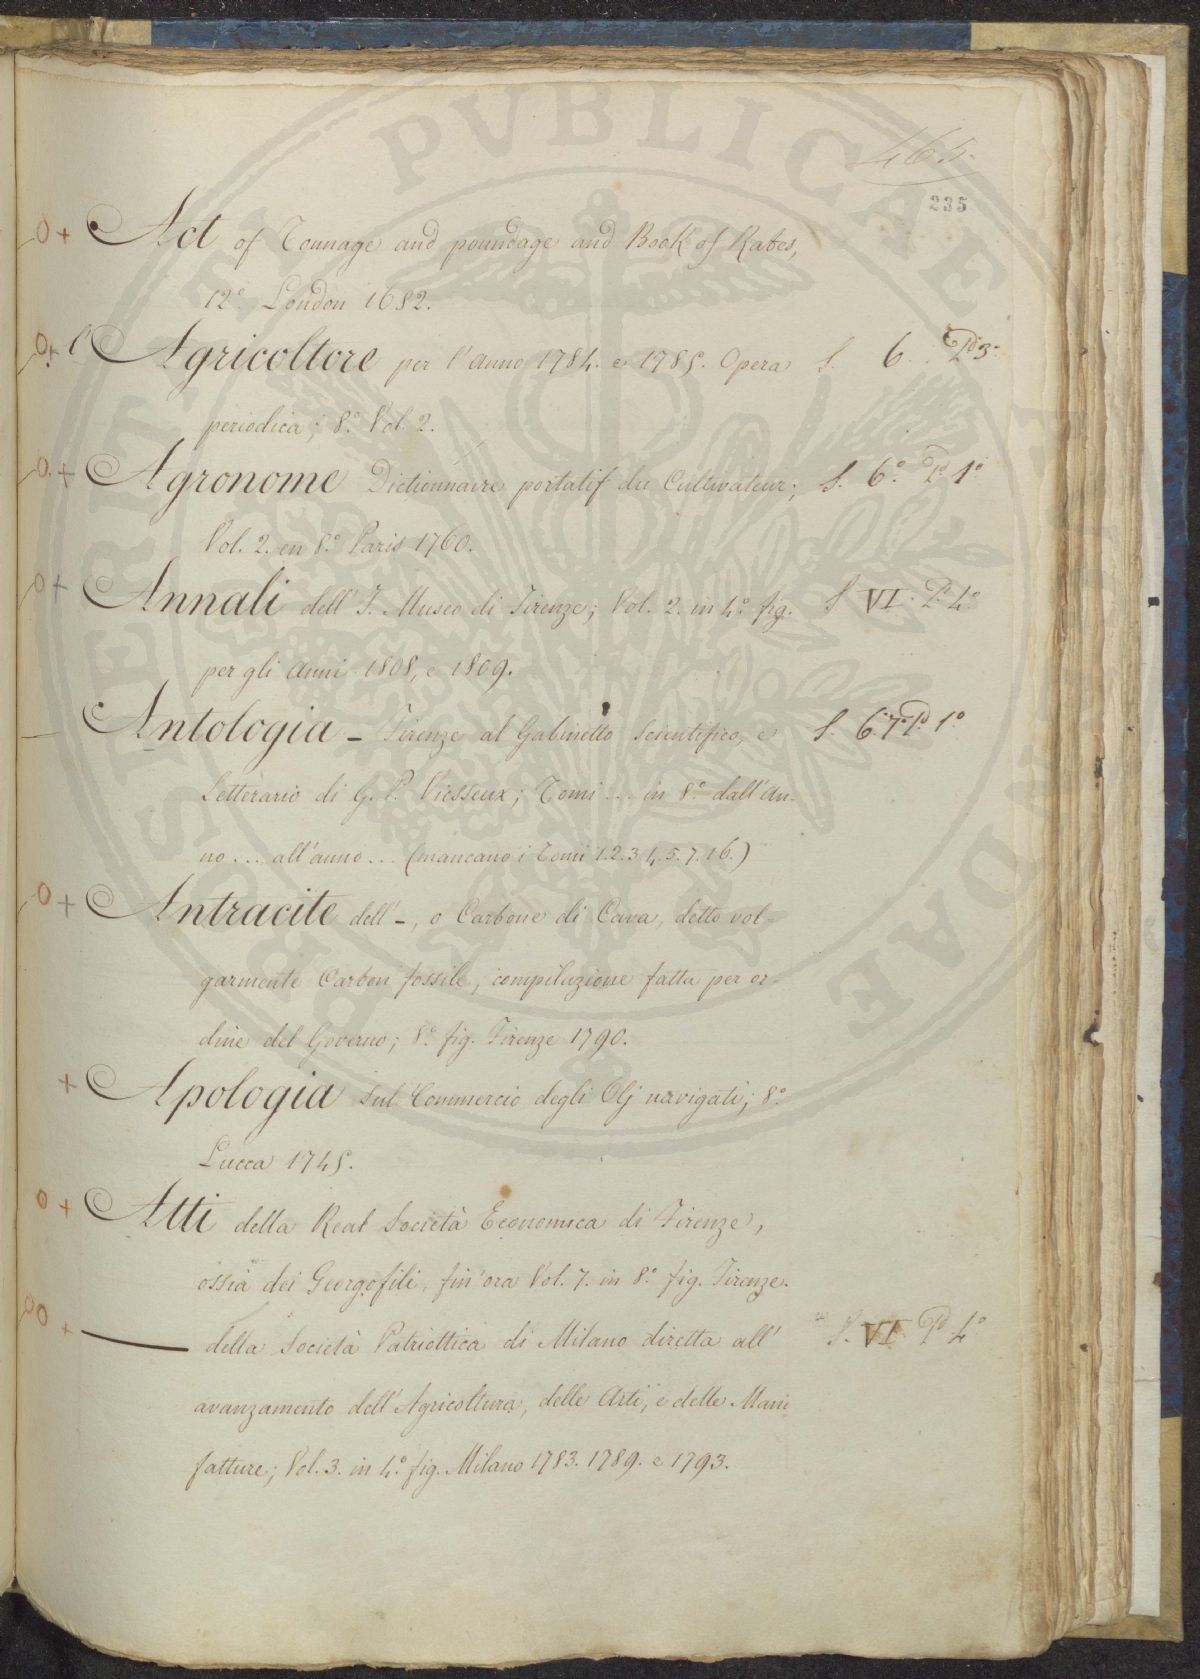 465.
235
0+ Act of Tonnage and poundage and Book of Rates,
12.° London 1682.
0+ l'Agricoltore per l'anno 1784. e 1785. Opera S. 6. Pd. 3.°
periodica; 8.° Vol. 2.
0+ Agronome Dictionnaire portatif du Cultivateur; S. 6.° Pd. 1.°
Vol. 2. en 8.° Paris 1760.
0+ Annali dell' I. Museo di Firenze; Vol. 2. in 4.° fig. S. VI. Pd. 4.°
per gli anni 1808, e 1809.
Antologia – Firenze al Gabinetto Scientifico, e S. 6.° 7.° Pd. 1.°
Letterario di G. P. Viesseux; Tomi ... in 8.° dall'an-
no ... all'anno ... (mancano i Tomi 1.2.3.4.5.7.16.)
0+ Antracite dell' –, o Carbone di Cava, detto vol-
garmente Carbon fossile, compilazione fatta per or-
dine del Governo; 8.° fig. Firenze 1790.
+ Apologia sul Commercio degli Olj navigati; 8.°
Lucca 1745.
0+ Atti della Real Società Economica di Firenze,
ossia dei Georgofili, fin'ora Vol. 7. in 8.° fig. Firenze.
+ — della Società Patriottica di Milano diretta all' S. VI. Pd. 4.°
avanzamento dell'Agricoltura, delle Arti, e delle Mani-
fatture; Vol. 3. in 4.° fig. Milano 1783. 1789. e 1793.
PROSPERITATI PVBLICAE AVGENDAE